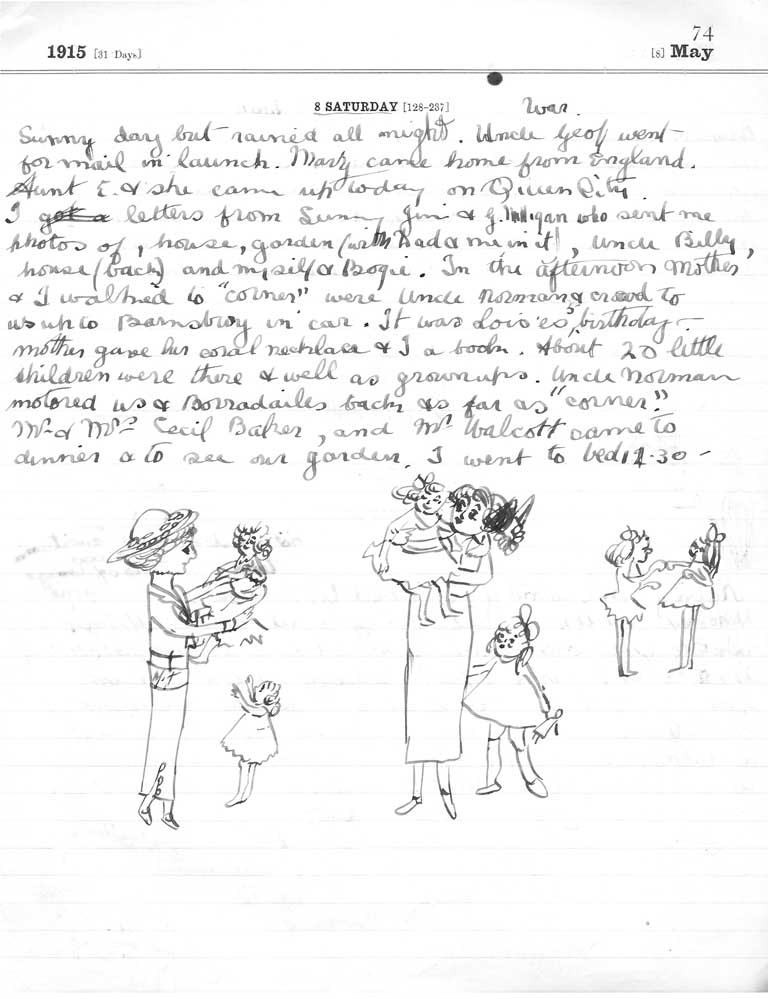 74
1915 [31 Days] [8] May
8 SATURDAY [128-237] War.
Sunny day but rained all night. Uncle Geoff went
for mail in launch. Mary came home from England.
Aunt E. & she came up today on Queen City.
I got a letters from Sunny Jim & G. Milligan who sent me
photos of, house, garden (with Dad & me in it), Uncle Billy,
house (back) and myself & Bogie. In the afternoon Mother
& I walked to "corner" were Uncle Norman & crowd to
us up to Barnsbury in car. It was Lois'es birthday –
mother gave her coral necklace & I a book. About 20 little
children were there & well as grownups. Uncle Norman
motored us & Borradailes back as far as "corner".
Mr & Mrs Cecil Baker, and Mr Walcott came to
dinner & to see our garden. I went to bed .30 –